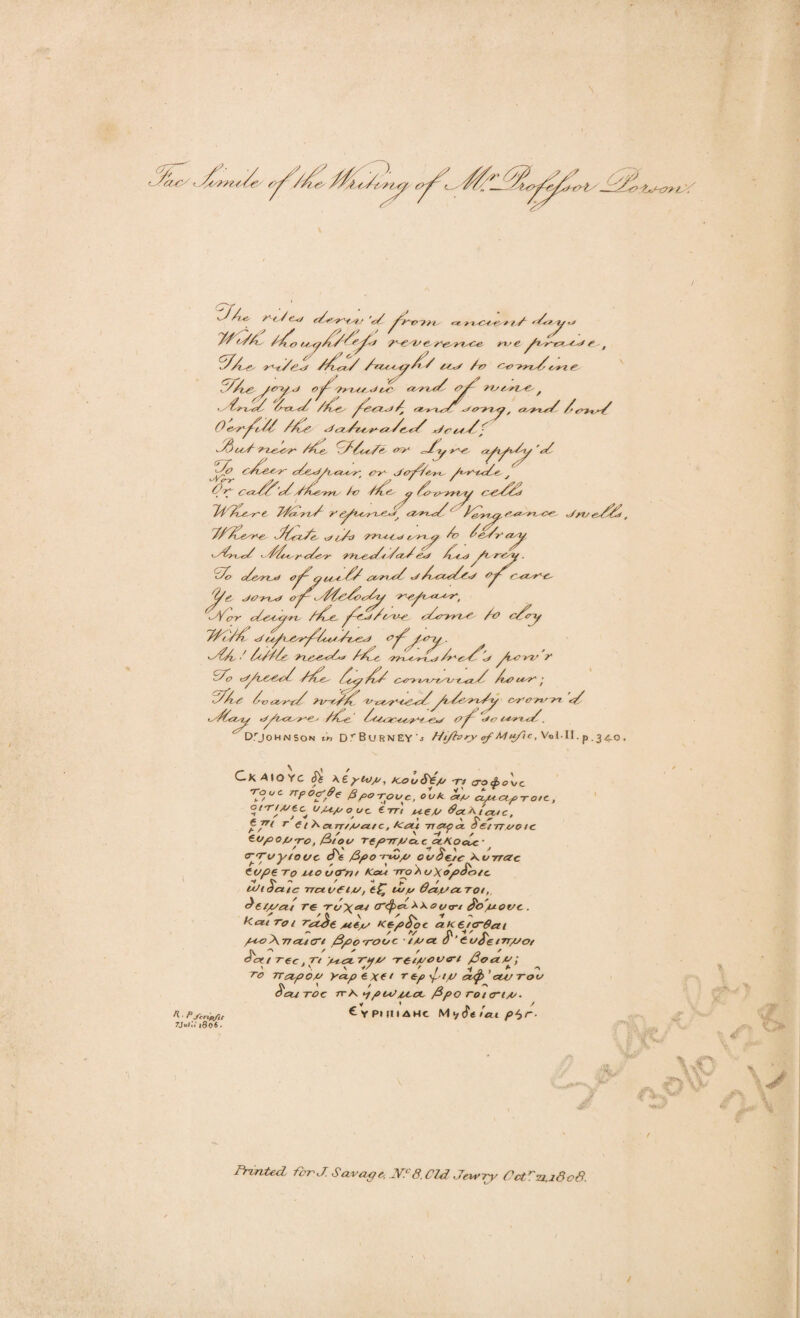 Fac Simile of the Writing of Mr. Professor Porson.
The rites deriv'd from ancient days
With thoughtless reverence we praise,
The rites that taught us to combine
The joys of music and of wine,
And bad the feast, and song, and bowl
O'erfill the saturated soul;
But ne'er the Flute or Lyre apply'd
To cheer despair, or soften pride,
Nor
Or call'd them to the gloomy cells
Where Want repines, and Vengeance swells,
Where Hate sits musing to betray
And Murder meditates his prey.
To dens of guilt and shades of care
Ye sons of Melody repair,
Nor deign the festive dome to cloy
With superfluities of joy.
Ah! little needs the minstrel's pow'r
To speed the light convivial hour;
The board with varied plenty crown'd
May spare the luxuries of sound.
Dr JOHNSON in Dr BURNEY's History of Music, Vol. II. p. 340.
Cκαιογc δὲ λέγων, κοὐδέν τι σοφοὺc
τοὺc πρόσθε βροτοὺc, οὐκ ἂν ἁμάρτοιc,
οἵτινεc ὕμνουc ἐπὶ μὲν θαλίαιc,
ἐπί τ' εἰλαπίναιc, καὶ παρὰ δείπνοιc
εὕροντο, βίου τερπνὰc ἀκοάc·
στυγίουc δὲ βροτῶν οὐδεὶc λύπαc
εὕρετο μούσῃ καὶ πολυχόρδοιc
ᾠδαῖc παύειν, ἐξ ὧν θάνατοι,
δειναί τε τύχαι σφάλλουσι δόμουc.
καίτοι τάδε μὲν κέρδοc ἀκεῖσθαι
μολπαῖσι βροτούc· ἵνα δ' εὔδειπνοι
δαῖτεc, τί μάτην τείνουσι βοάν;
τὸ παρὸν γὰρ ἔχει τέρψιν ἀφ' αὑτοῦ
δαιτὸc πλήρωμα βροτοῖσιν.
ЄΥΡΙΠΙΔΗC Μηδείαι ρ4r.
R. P. scripsit
7 Julii 1806.
Printed for J. Savage, No. 8, Old Jewry Octr. 21, 1808.